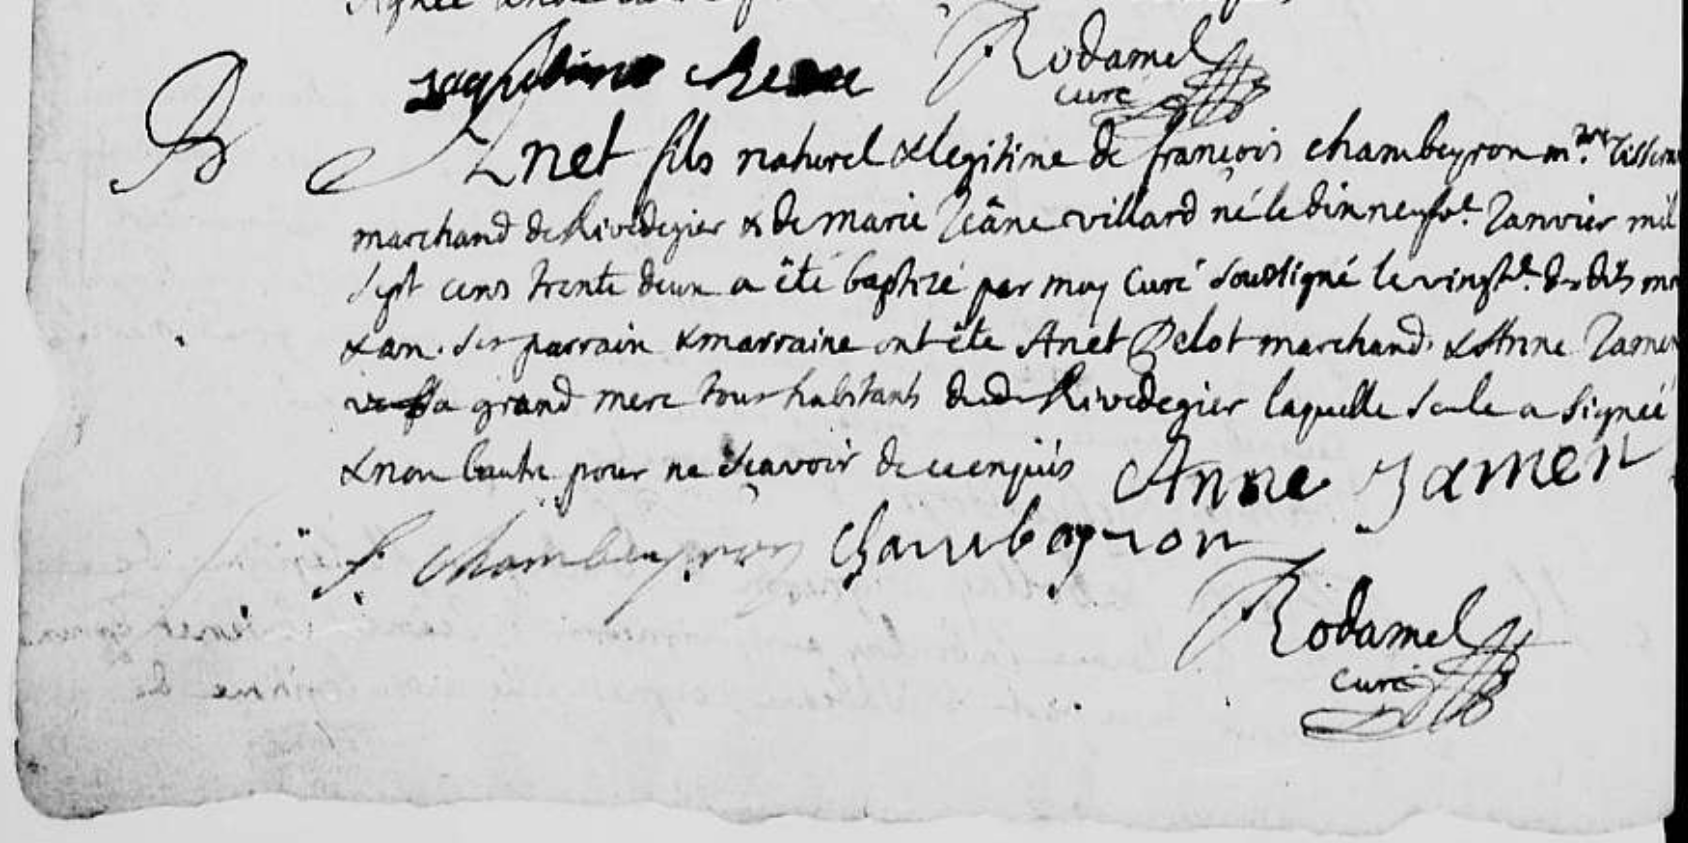 Jaqueline
Rodamel
curé
B
Anet fils naturel & legitime de françois chambeyron m.re
marchand de Rivedegier & de marie Jeãne villard né le dinneufve.e Janvier mil
sept cens trente deux a êté baptizé par moy Curé soussigné le vingt.e du dit
& an. ses parrain & marraine ont été Anet Pelot marchand & Anne Jamen
sa grand mere tous habitants dud. Rivedegier laquelle seule a signée
& non lautre pour ne sçavoir de ce enquis Anne Jamen
f. Chambeyron Chambeyron
Rodamel
curé